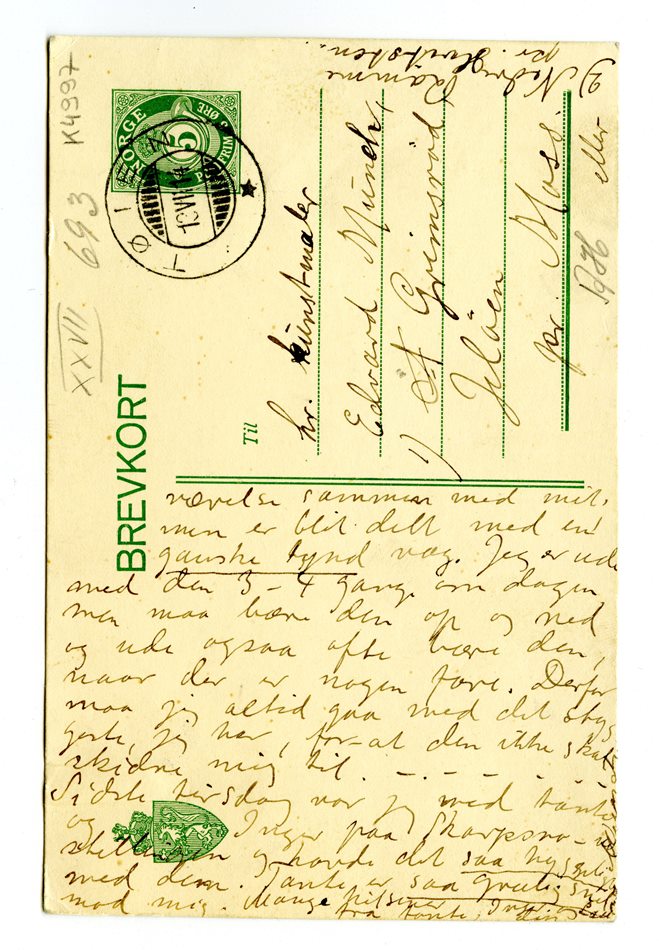 K4997
693
XXVII
NORGE
5
5 ØRE
TØIEN
18 VII 14
BREVKORT
Til
hr. kunstmaler
Edvard Munch,
1) Grimsrød
Jeløen
pr. Moss. eller
2) Nedre Ramme
pr. Hvitsten.
værelse sammen med mit,
men er blit delt med en
ganske tynd væg. Jeg er ude
med den 3-4 gange om dagen,
men maa bære den op og ned
og ude ogsaa ofte bære den,
naar der er nogen fare. Derfor
maa jeg altid gaa med det styg
geste, jeg har, for at den ikke skal
skidne mig til.
Sidste tirsdag var jeg med tante
og Inger paa Skarpsno-u
stillingen og havde det saa hyggelig
med dem. Tante er saa grulig snil
mod mig. Mange hilsener
fra tante, Inger og
din